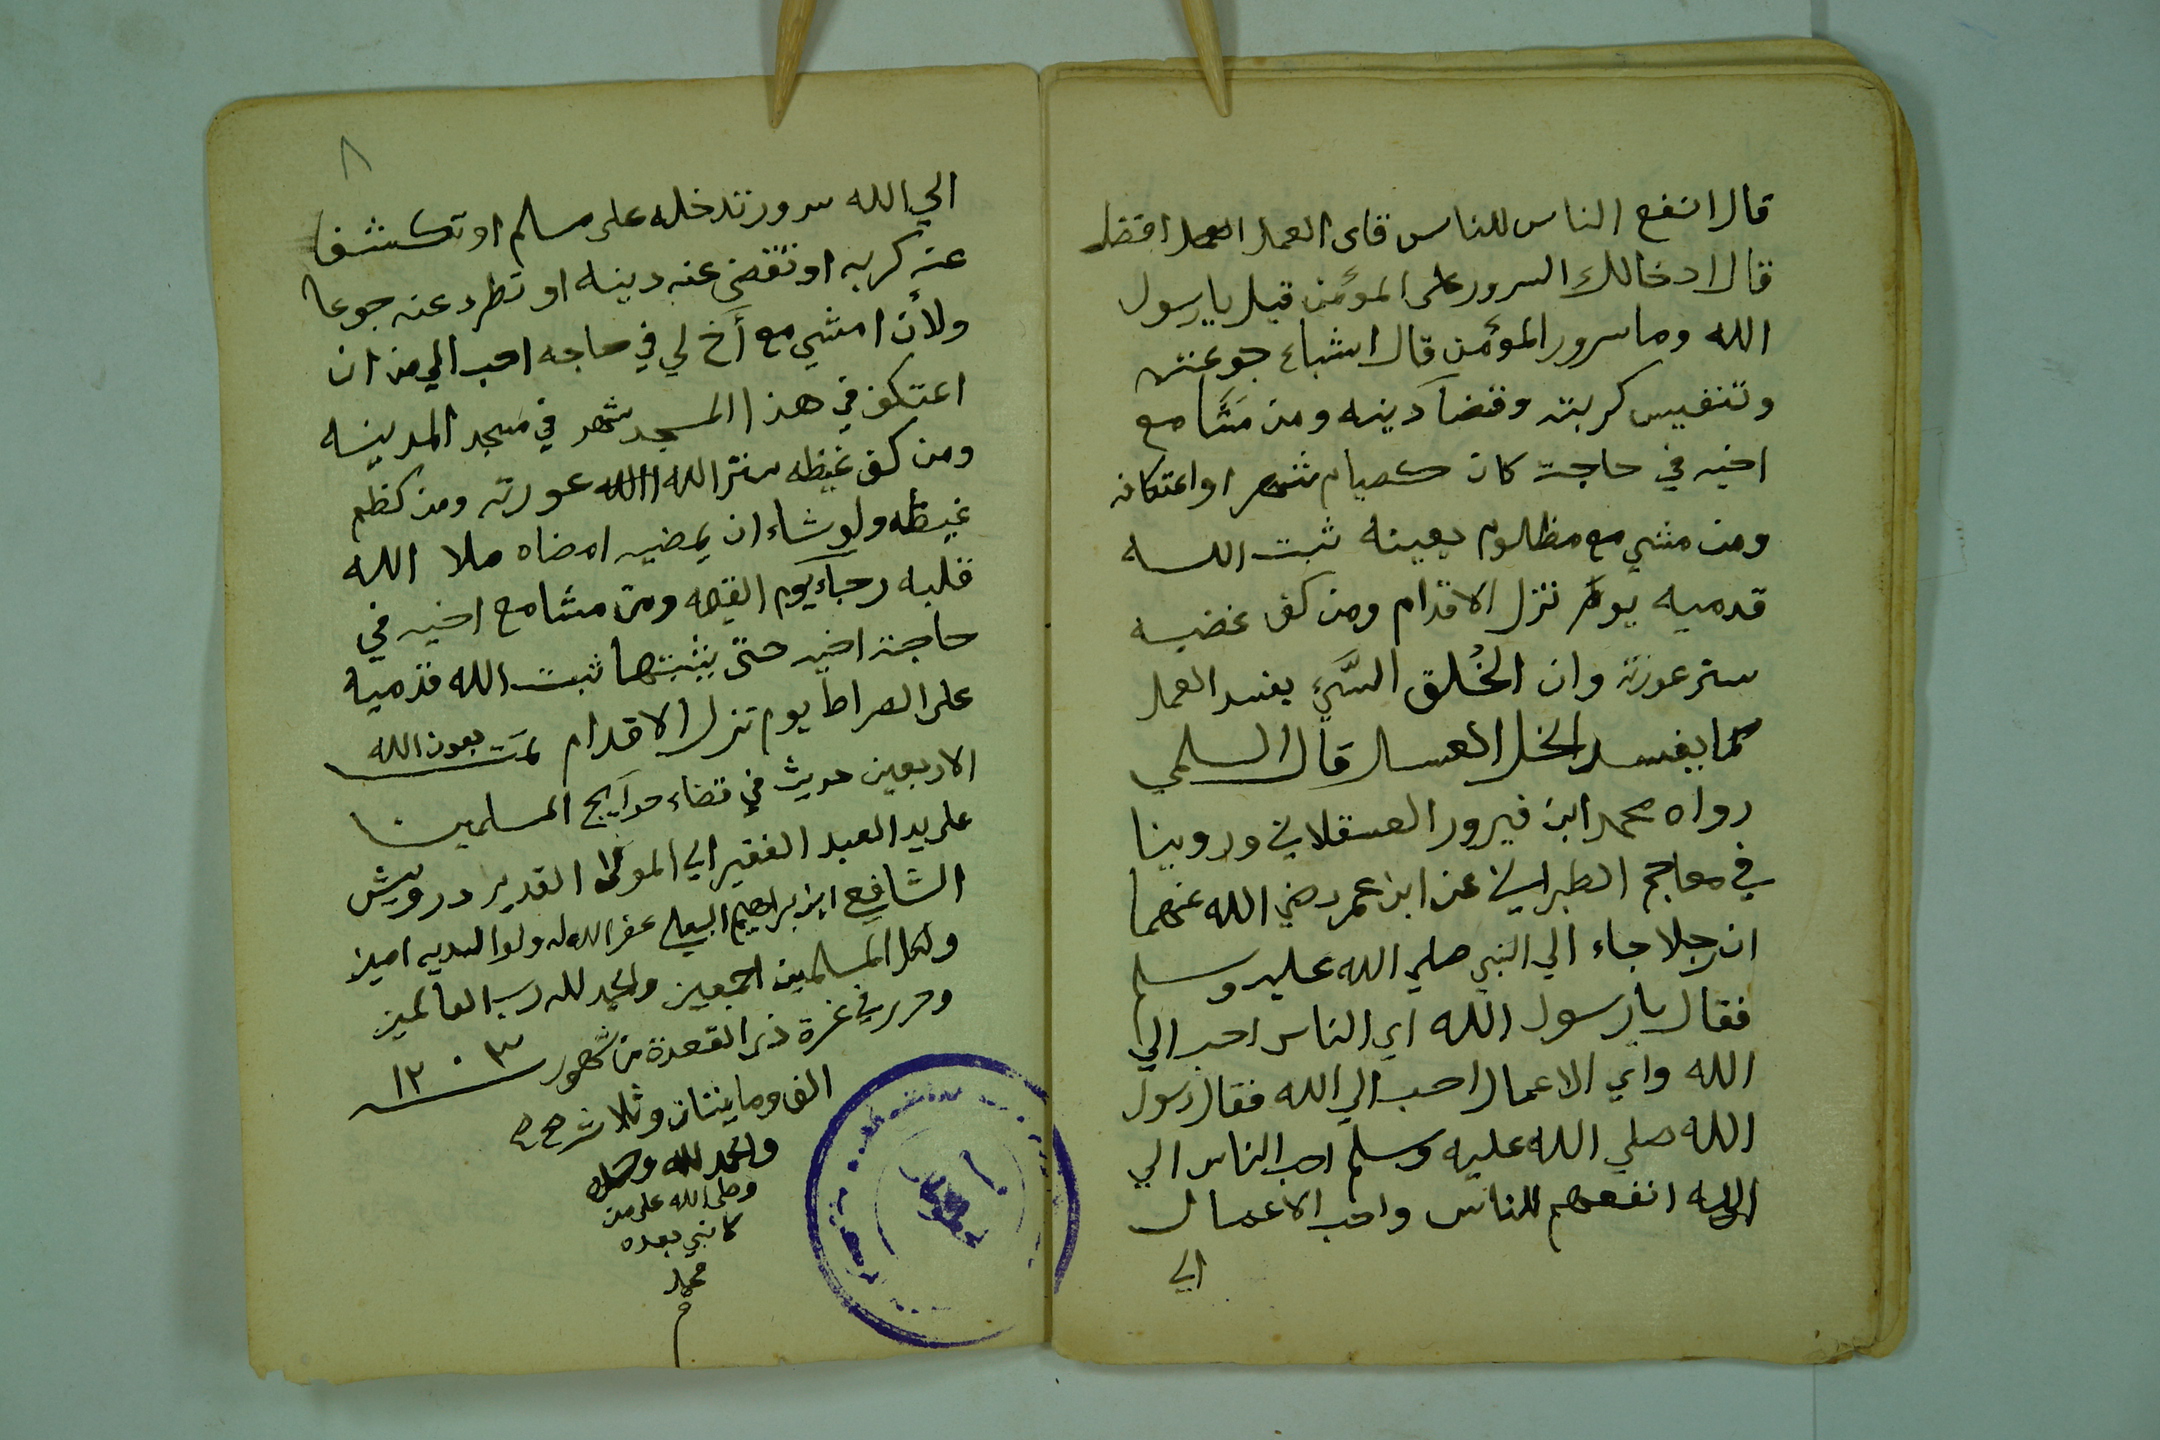 قال انفع الناس للناس قاى العمل العمل افضل
قال ادخالك السرور على المؤمن قيل يا رسول
الله وما سرور المؤمن قال اشباع جوعته
وتنفيس كربته وقضآ دينه ومن مَشَا مع
اخيه في حاجت كان كصيام شهر او اعتكافه
ومن مشي مع مظلوم يعينه ثبت الله
قدميه يوم تزل الاقدام ومن كف غضبه
ستر عورته وان الخُلق السَّيّ يفسد العمل
كما يفسد الخل العسل قال السلمي
رواه محمد ابن فيرور العسقلاني وروينا
في معاجم الطبراني عن ابن عمر رضي الله عنهما
ان رجلا جاء الي النبي صلي الله عليه وسلم
فقال يا رسول الله اي الناس احب الي
الله واي الاعمال احب الي الله فقال رسول
الله صلي الله عليه وسلم احب الناس الي
الله انفعهم للناس واحب الاعمال
الي
٨
الي الله سرور تدخله على مسلم او تكشف
عنه كربه او تقضي عنه دينه او تطرد عنه جوعا
ولأن امشي مع أخ لي في حاجه احب الي من ان
اعتكف في هذا المسجد شهر في مسجد المدينه
ومن كف غيظه ستر الله الله عورته ومن كظم
غيظه ولو شاء ان يمضيه امضاه ملا الله
قلبه رجآء يوم القيمه ومن مشا مع اخيه في
حاجة اخيه حتى يثبتها ثبت الله قدميه
على الصراط يوم تزل الاقدام تمت بعون الله
الاربعين حديث في قضاء حوايج المسلمين
على يد العبد الفقير الي المولى القدير درويش
الشافعي ابن ابراهيم عفر الله له ولوالديه امين
ولكل المسلمين اجمعين والحمد لله رب العالمين
وحرر في غرة ذي القعدة من شهور ١٢٠٣
الف وماينتان وثلاثه
والحمد لله
وصلى الله على من
لا نبي بعده
محمد
م